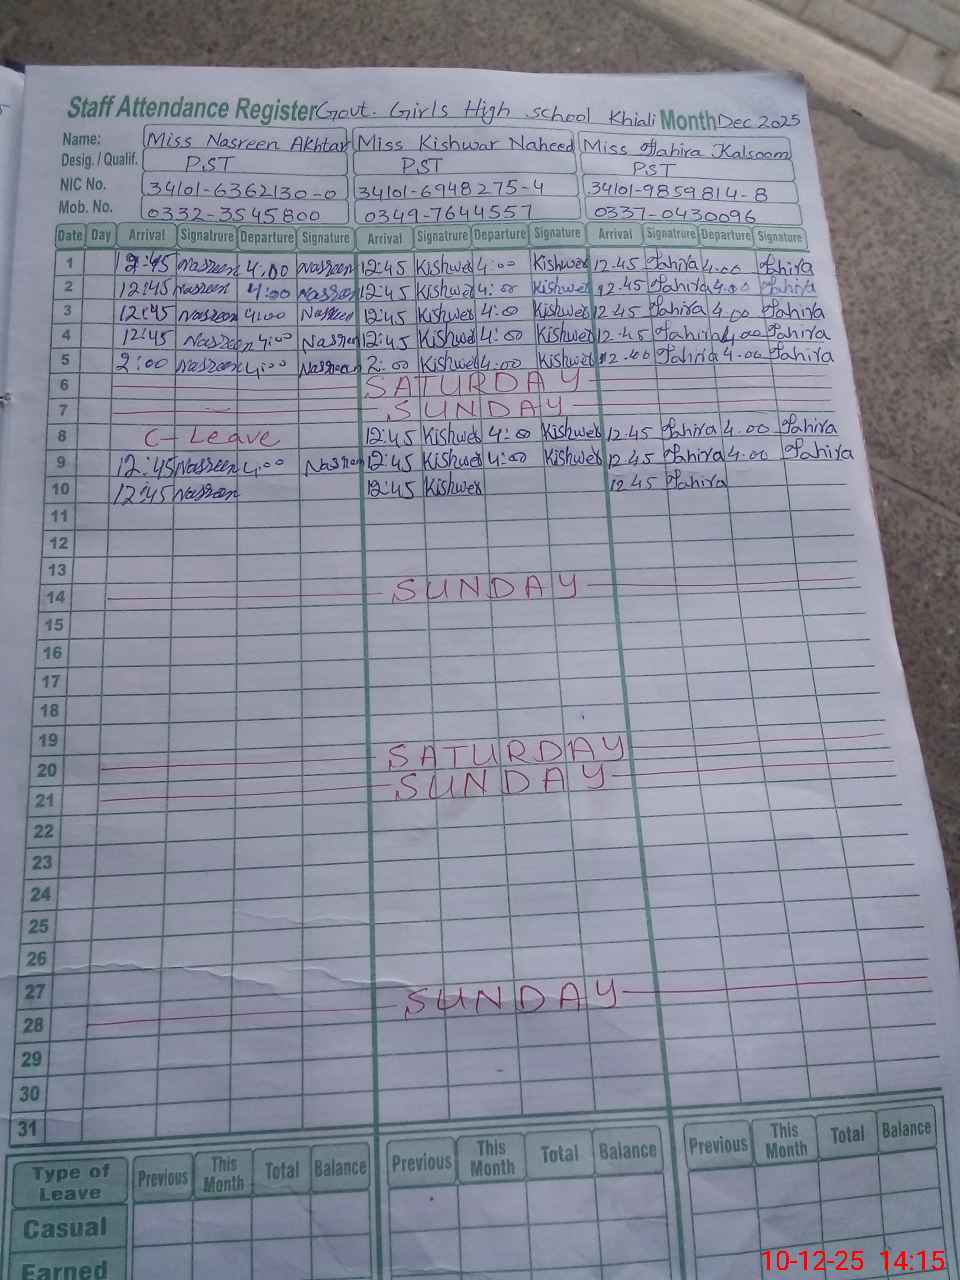 Staff Attendance Register Govt. Girls High school Khiali Month Dec 2025
Name: Miss Nasreen Akhtar Miss Kishwar Naheed Miss Tahira Kalsoom
Desig. / Qualif. P.S.T P.S.T P.S.T
NIC No. 34101-6362130-0 34101-6948275-4 34101-9859814-8
Mob. No. 0332-3545800 0349-7644557 0337-0430096
Date Day Arrival Signatrure Departure Signature Arrival Signatrure Departure Signature Arrival Signatrure Departure Signature
1 12:45 Nasreen 4:00 Nasreen 12:45 Kishwer 4:00 Kishwer 12.45 Tahira 4.00 Tahira
2 12:45 Nasreen 4:00 Nasreen 12:45 Kishwer 4:00 Kishwer 12.45 Tahira 4.00 Tahira
3 12:45 Nasreen 4:00 Nasreen 12:45 Kishwer 4:00 Kishwer 12.45 Tahira 4.00 Tahira
4 12:45 Nasreen 4:00 Nasreen 12:45 Kishwer 4:00 Kishwer 12.45 Tahira 4.00 Tahira
5 2:00 Nasreen 4:00 Nasreen 2:00 Kishwer 4:00 Kishwer Tahira 4.00 Tahira
6 SATURDAY
7 SUNDAY
8 C-Leave 12:45 Kishwer 4:00 Kishwer 12.45 Tahira 4.00 Tahira
9 12:45 Nasreen 4:00 Nasreen 12:45 Kishwer 4:00 Kishwer 12.45 Tahira 4.00 Tahira
10 12:45 Nasreen 12:45 Kishwer 12.45 Tahira
11
12
13
14 SUNDAY
15
16
17
18
19
20 SATURDAY
21 SUNDAY
22
23
24
25
26
27
28 SUNDAY
29
30
31
Type of Leave Previous This Month Total Balance Previous This Month Total Balance Previous This Month Total Balance
Casual
Earned
10-12-25 14:15